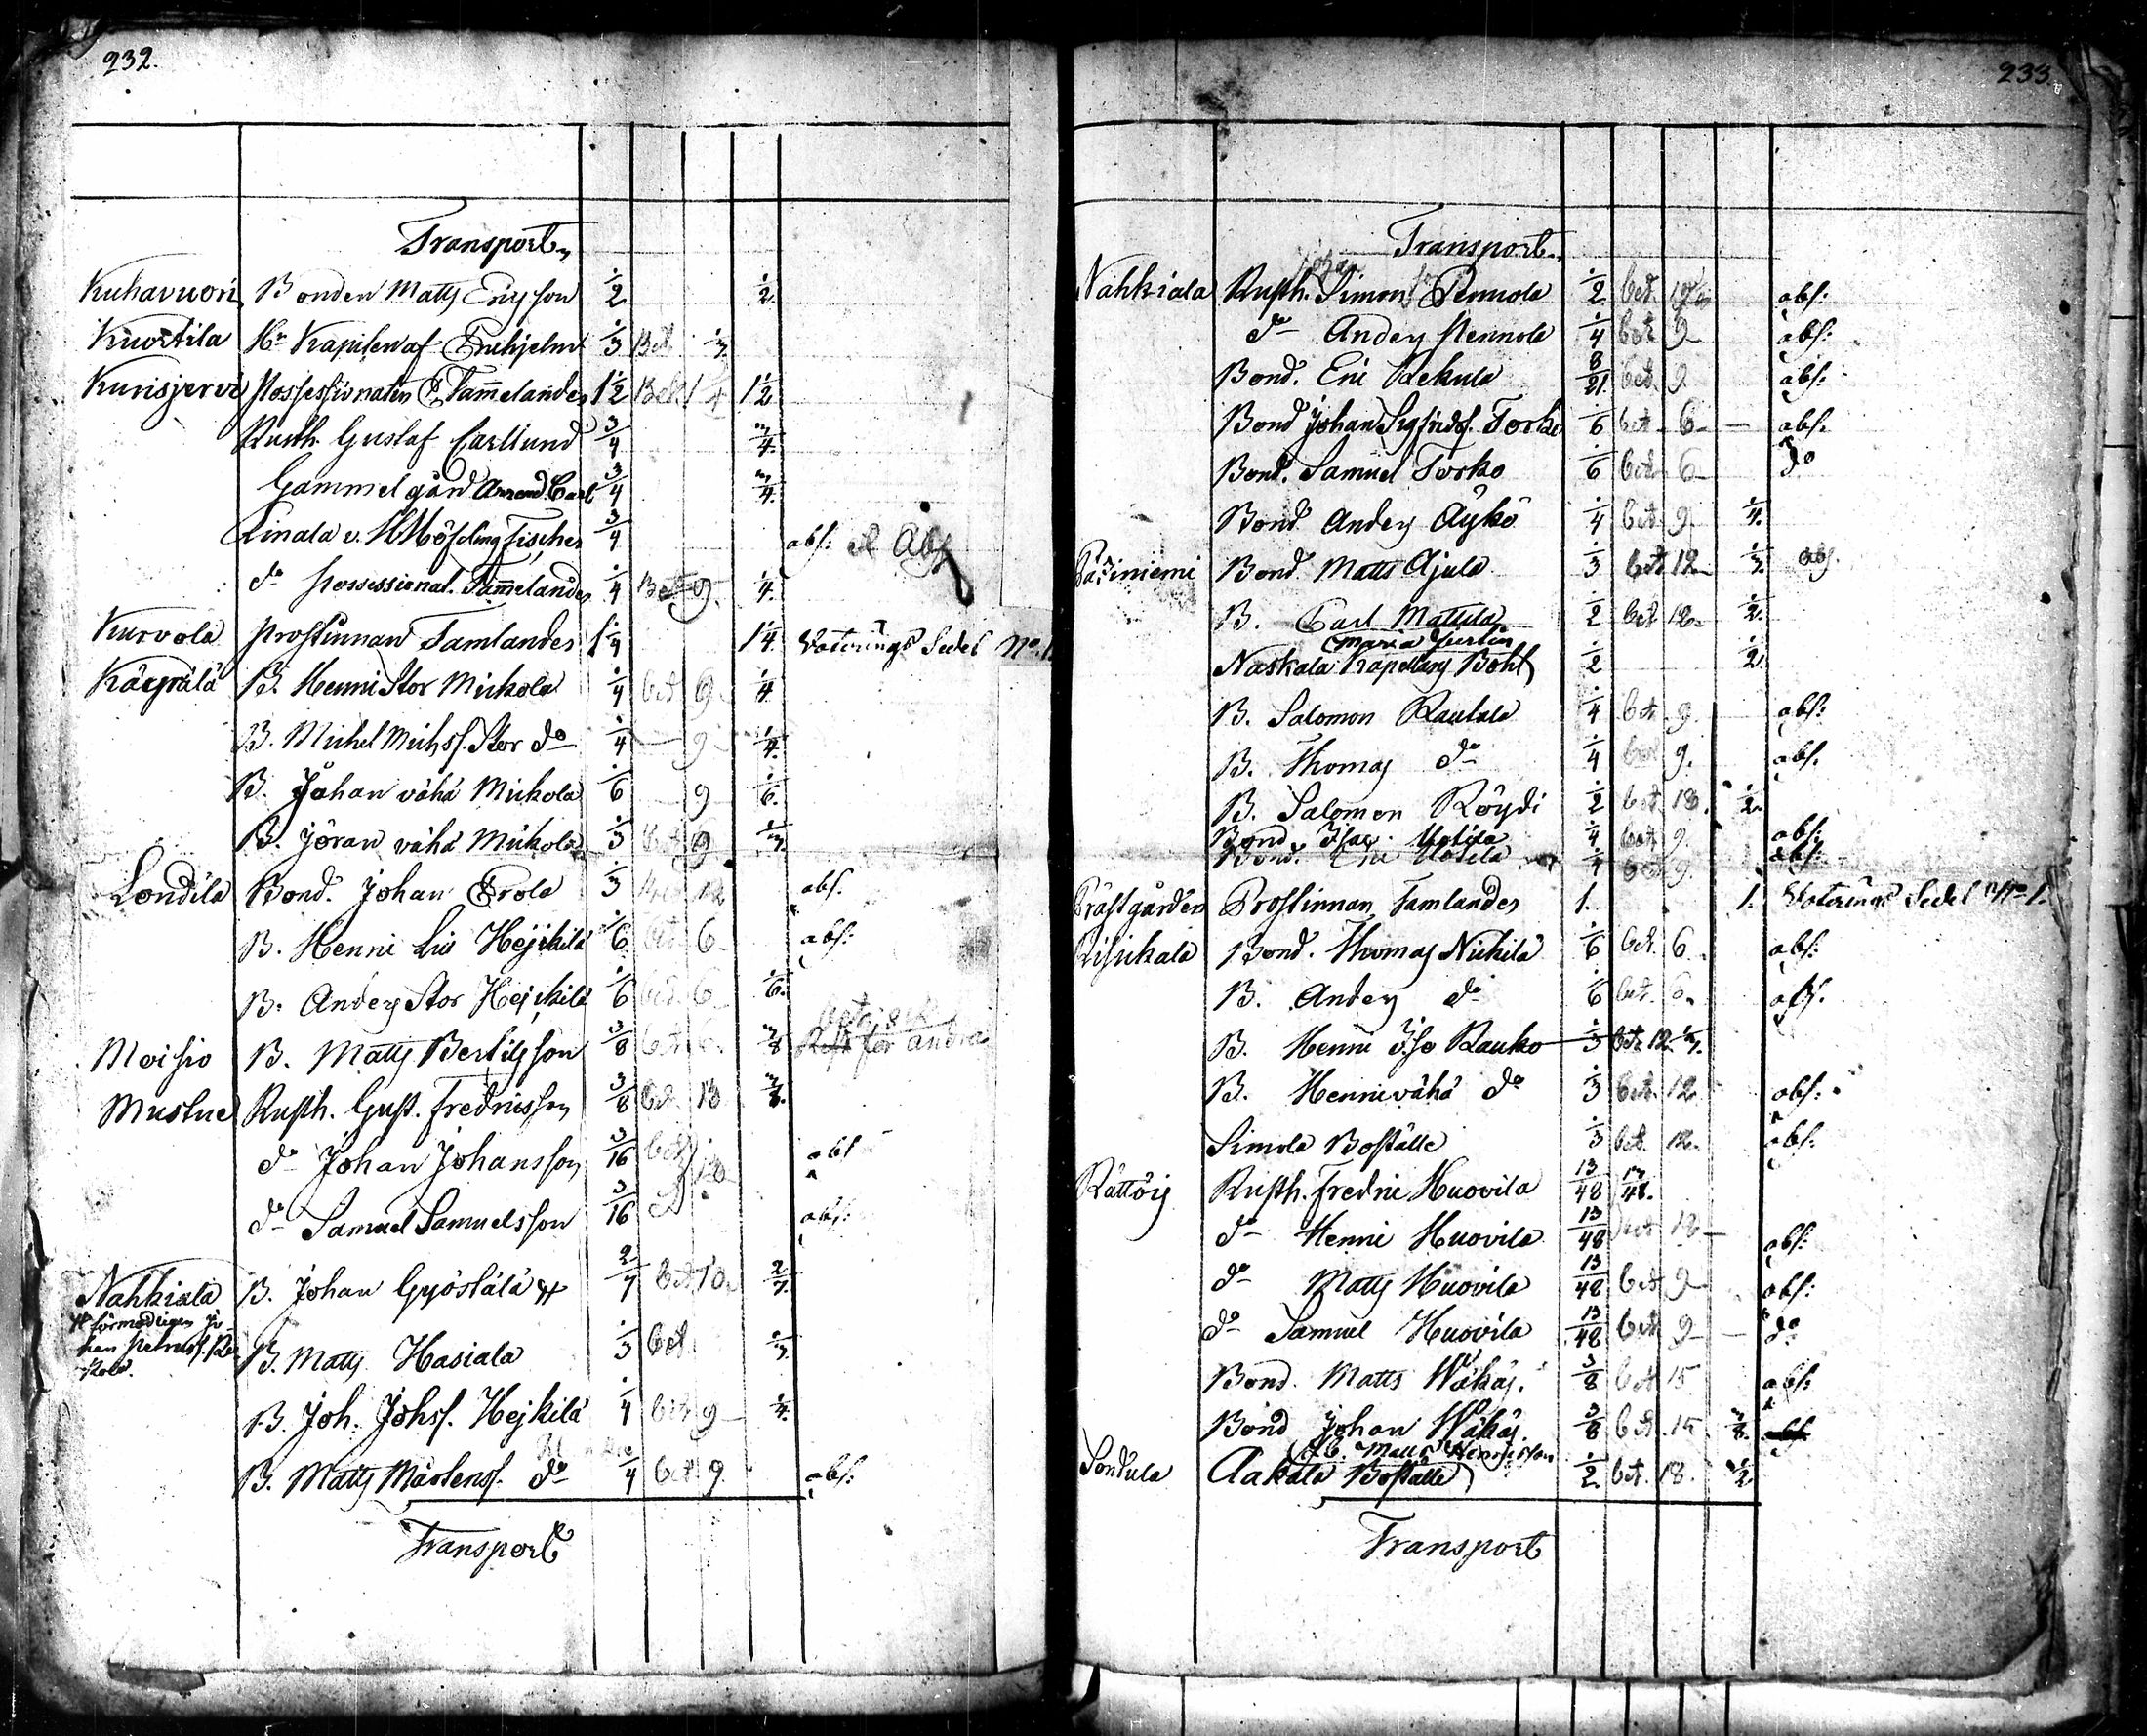 232.
Transport
Kuhavuori Bonden Matts Ericsson 1/2 1/2
Kuortila Hr Kapiten af Enehjelm 1/3 Bet 1/3
Kurisjervi Possessionaten E. Tam̅elander 1 1/2 Bet 1 1/2
Rusth. Gustaf Carllund 3/4 3/4
Gammelgård Arrend. Carl 3/4 3/4
Linala v. H Höfding Fischer 3/4 abs: Abs
do possessionat. Tam̅elander 1/4 Bet 9. 1/4
Kurvola Prostinnan Tamlander 1 1/4 1 1/4 Voterings Sedel No 1
Käcpälä B. Henric Stor Mickola 1/4 bet 9 1/4
B. Michel Michss. Stor do 1/4 — 9 1/4
B. Johan vähä Mickola 1/6 9 1/6.
B. Jöran vähä Mickola 1/3 bet 9 1/3
Londila Bond. Johan Erola 1/3 bet 12 abs.
B. Henric Lill Hejkilä 1/6 bet 6 abs:
B. Anders Stor Hejckilä 1/6 bet. 6 1/6.
Moisio B. Matts Bertilsson 3/8 bet 3/8 för andra
Mustue Rusth. Gust. Fredricsson 3/8 bet 13 3/8.
do Johan Johansson 3/16 bet 13 abs
do Samuel Samuelsson 3/16 abs:
Nahkiala B. Johan Gyöstälä # 2/7 bet 10. 2/7.
# förmodligen Jo-
han Petruss. Re-
kola.
B. Matts Hasiala 1/3 bet. 1/3
B. Joh. Johss. Hejkilä 1/4 bet 9 1/4.
B. Matts Mårtenss. do 1/4 bet 9 abs:
Transport
233
Transport
Nahkiala Rusth. Simon Pennola 1/2 bet. abs:
do Anders Pennola 1/4 bet 9 abs:
Bond. Eric Rekula 8/21. bet. 9 abs:
Bond Johan Sigfridss. Torko 1/6 bet 6 — abs.
Bond. Samuel Torko 1/6 bet 6 do
Bond. Anders Äykö 1/4 bet 9. 1/4.
Päiniemi Bond. Matts Ajula 1/3 bet 12 1/3. abs.
B. Carl Mattila 1/2 bet 12. 1/2.
Maria
Naskala Kapellans Bohl 1/2 1/2.
B. Salomon Rautala 1/4 bet. 9. abs:
B. Thomas do 1/4 bet 9. abs.
B. Salomon Röydi 1/2 bet. 18. 1/2
Bond Isac Uotila 1/4 bet 9. abs:
Bond. Eric Uotila 1/4 bet 9. abs:
Prästgården Prostinnan Tamlander 1. 1. Voterings Sedel No 1.
Risikala Bond. Thomas Nickilä 1/6 bet. 6. abs:
B. Anders do 1/6 bet. 6. abs.
B. Henric Iso Rauko 1/3 bet 12 1/3.
B. Henric vähä do 1/3 bet. 12. abs:
Simola Boställe 1/3 bet. 12. abs:
Rättöis Rusth. Fredric Huovila 13/48 13/48.
do Henric Huovila 13/48 bet 18 — abs:
do Matts Huovila 13/48 bet 9 abs:
do Samuel Huovila 13/48 bet 9 — do
Bond. Matts Wäkäs. 3/8 bet 15 abs:
Bond Johan Wäkäs. 3/8 bet. 15 3/8. abs
Matts Henricsson
Sondula Aakala Boställe 1/2 bet. 18. 1/2
Transport